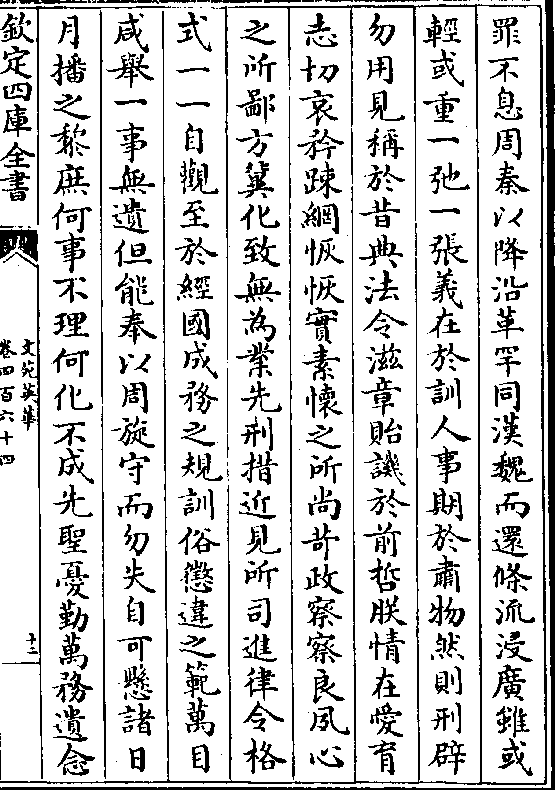 罪不息周秦以降沿革罕同漢魏而還條流浸廣雖或
輕或重一弛一張義在於訓人事期於肅物然則刑辟
勿用見稱於昔典法令滋章貽譏於前哲朕情在愛育
志切哀矜踈網恢恢實素懷之所尚苛政察察良夙心
之所鄙方冀化致無為業先刑措近見所司進律令格
式一一自觀至於經國成務之規訓俗懲違之範萬目
咸舉一事無遺但能奉以周旋守而勿失自可懸諸日
月播之黎庶何事不理何化不成先聖憂勤萬務遺念
欽定四庫全書
文苑英華
卷四百六十四
十二